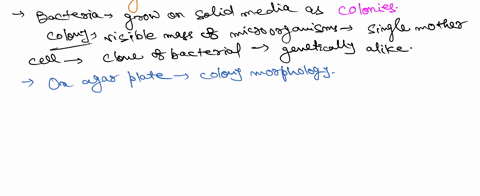 → Bacteria → grow on solid media as colonies.
colony → visible mass of microorganisms → single mother
cell → clone of bacterial → genetically alike.
→ On agar plate → colony morphology.